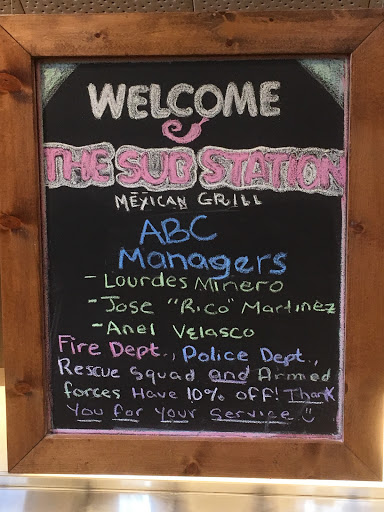 WELCOME
THE SUB STATION
MEXICAN GRILL
ABC
Managers
- Lourdes Minero
- Jose "Rico" Martinez
- Anel Velasco
Fire Dept., Police Dept.,
Rescue Squad and Armed
forces Have 10% off! Thank
You for Your Service